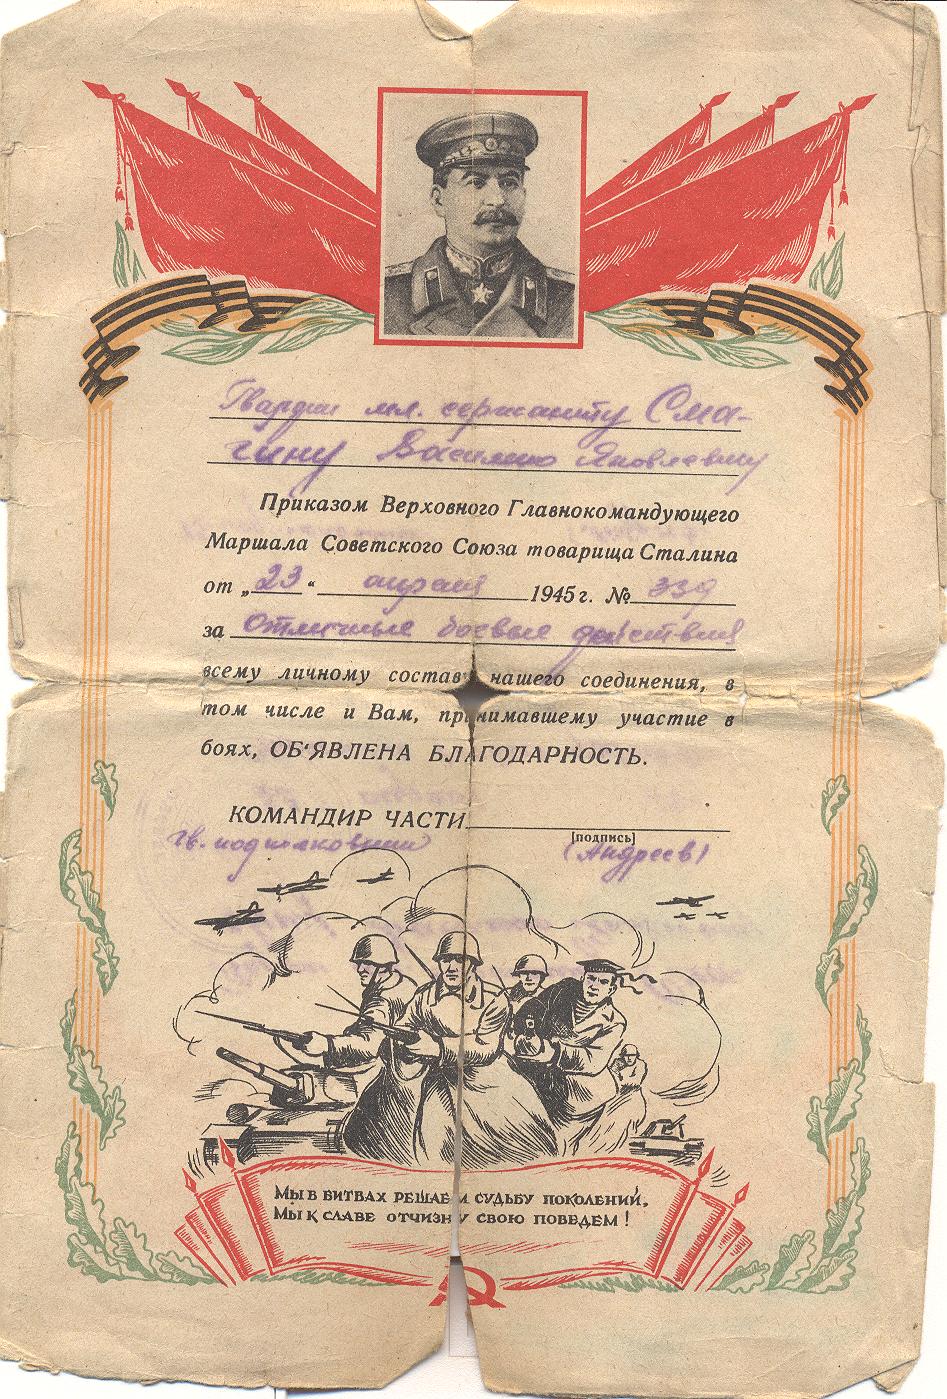 Гвардии мл. сержанту Сма-
гину Василию Яковлевичу
Приказом Верховного Главнокомандующего
Маршала Советского Союза товарища Сталина
от „23“ апреля 1945 г. № 339
за отличные боевые действия
всему личному составу нашего соединения, в
том числе и Вам, принимавшему участие в
боях, ОБ'ЯВЛЕНА БЛАГОДАРНОСТЬ.
КОМАНДИР ЧАСТИ
[подпись]
гв. подполковник (Андреев)
Мы в битвах решаем судьбу поколений,
Мы к славе отчизну свою поведем!